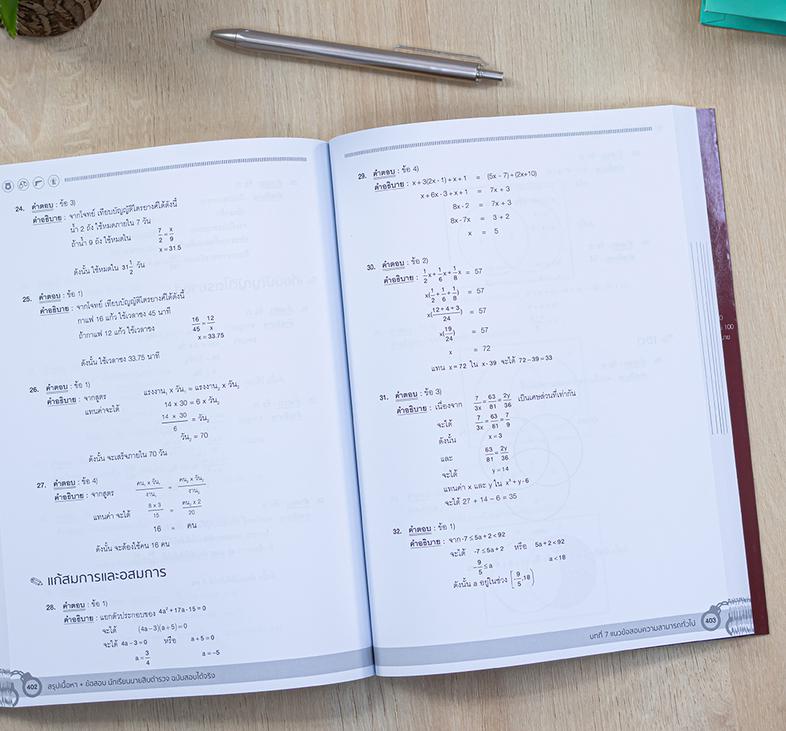 24. คำตอบ : ข้อ 3)
คำอธิบาย : จากโจทย์ เทียบบัญญัติไตรยางค์ได้ดังนี้
น้ำ 2 ถัง ใช้หมดภายใน 7 วัน
ถ้าน้ำ 9 ถัง ใช้หมดใน 7/2 = x/9
x = 31.5
ดังนั้น ใช้หมดใน 31 1/2 วัน
25. คำตอบ : ข้อ 1)
คำอธิบาย : จากโจทย์ เทียบบัญญัติไตรยางค์ได้ดังนี้
กาแฟ 16 แก้ว ใช้เวลาชง 45 นาที
ถ้ากาแฟ 12 แก้ว ใช้เวลาชง 16/45 = 12/x
x = 33.75
ดังนั้น ใช้เวลาชง 33.75 นาที
26. คำตอบ : ข้อ 1)
คำอธิบาย : จากสูตร แรงงาน₁ x วัน₁ = แรงงาน₂ x วัน₂
แทนค่าจะได้ 14 x 30 = 6 x วัน₂
14 x 30/6 = วัน₂
วัน₂ = 70
ดังนั้น จะเสร็จภายใน 70 วัน
27. คำตอบ : ข้อ 4)
คำอธิบาย : จากสูตร คน₁ x วัน₁/งาน₁ = คน₂ x วัน₂/งาน₂
แทนค่า จะได้ 8 x 3/15 = คน₂ x 2/20
16 = คน
ดังนั้น จะต้องใช้คน 16 คน
แก้สมการและอสมการ
28. คำตอบ : ข้อ 1)
คำอธิบาย : แยกตัวประกอบของ 4a² + 17a - 15 = 0
จะได้ (4a-3)(a+5) = 0
จะได้ 4a-3 = 0 หรือ a+5 = 0
a = 3/4 a = -5
402 สรุปเนื้อหา + ข้อสอบ นักเรียนนายสิบตำรวจ ฉบับสอบได้จริง
29. คำตอบ : ข้อ 4)
คำอธิบาย : x + 3(2x - 1) + x + 1 = (5x - 7) + (2x+10)
x + 6x - 3 + x + 1 = 7x + 3
8x - 2 = 7x + 3
8x - 7x = 3 + 2
x = 5
30. คำตอบ : ข้อ 2)
คำอธิบาย : 1/2 x + 1/6 x + 1/8 x = 57
x(1/2 + 1/6 + 1/8) = 57
x(12 + 4 + 3/24) = 57
x(19/24) = 57
x = 72
แทน x = 72 ใน x - 39 จะได้ 72 - 39 = 33
31. คำตอบ : ข้อ 3)
คำอธิบาย : เนื่องจาก 7/3x = 63/81 = 2y/36 เป็นเศษส่วนที่เท่ากัน
จะได้ 7/3x = 63/81 = 7/9
ดังนั้น x = 3
และ 63/81 = 2y/36
จะได้ y = 14
แทนค่า x และ y ใน x³ + y - 6
จะได้ 27 + 14 - 6 = 35
32. คำตอบ : ข้อ 1)
คำอธิบาย : จาก -7 ≤ 5a + 2 < 92
จะได้ -7 ≤ 5a + 2 หรือ 5a + 2 < 92
-9/5 ≤ a a < 18
ดังนั้น a อยู่ในช่วง [-9/5, 18)
บทที่ 7 แนวข้อสอบความสามารถทั่วไป 403